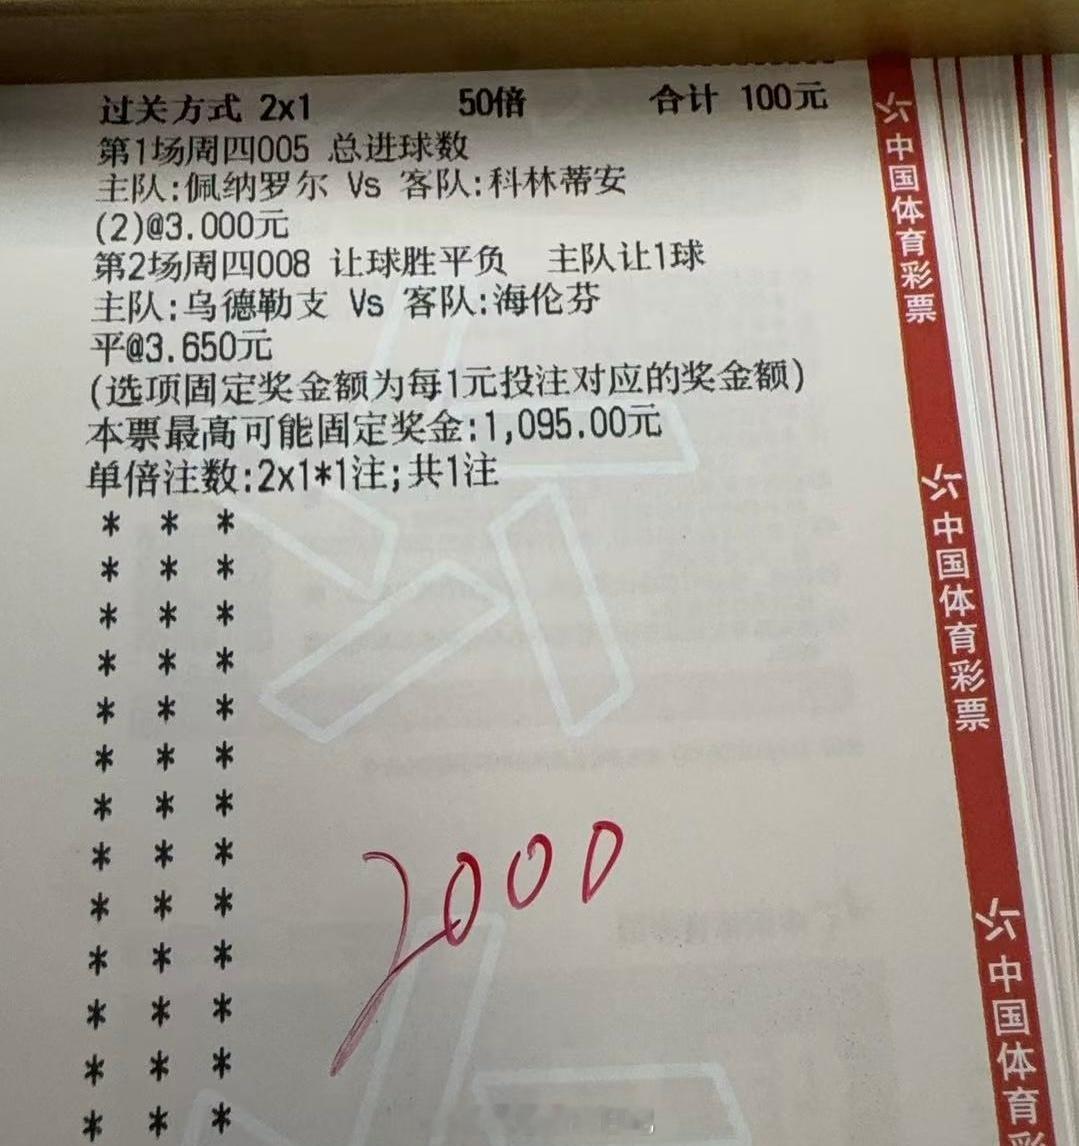 过关方式 2x1 50倍 合计 100元
第1场周四005 总进球数
主队:佩纳罗尔 Vs 客队:科林蒂安
(2)@3.000元
第2场周四008 让球胜平负 主队让1球
主队:乌德勒支 Vs 客队:海伦芬
平@3.650元
(选项固定奖金额为每1元投注对应的奖金额)
本票最高可能固定奖金:1,095.00元
单倍注数:2x1*1注;共1注
* * *
* * *
* * *
* * *
* * *
* * *
* * *
* * *
* * *
* * *
* * *
* * *
* * *
2000
中国体育彩票
中国体育彩票
中国体育彩